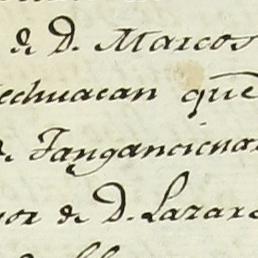 de D. Marcos
echuacan que
de Tangancicua
or de D. Lazaro